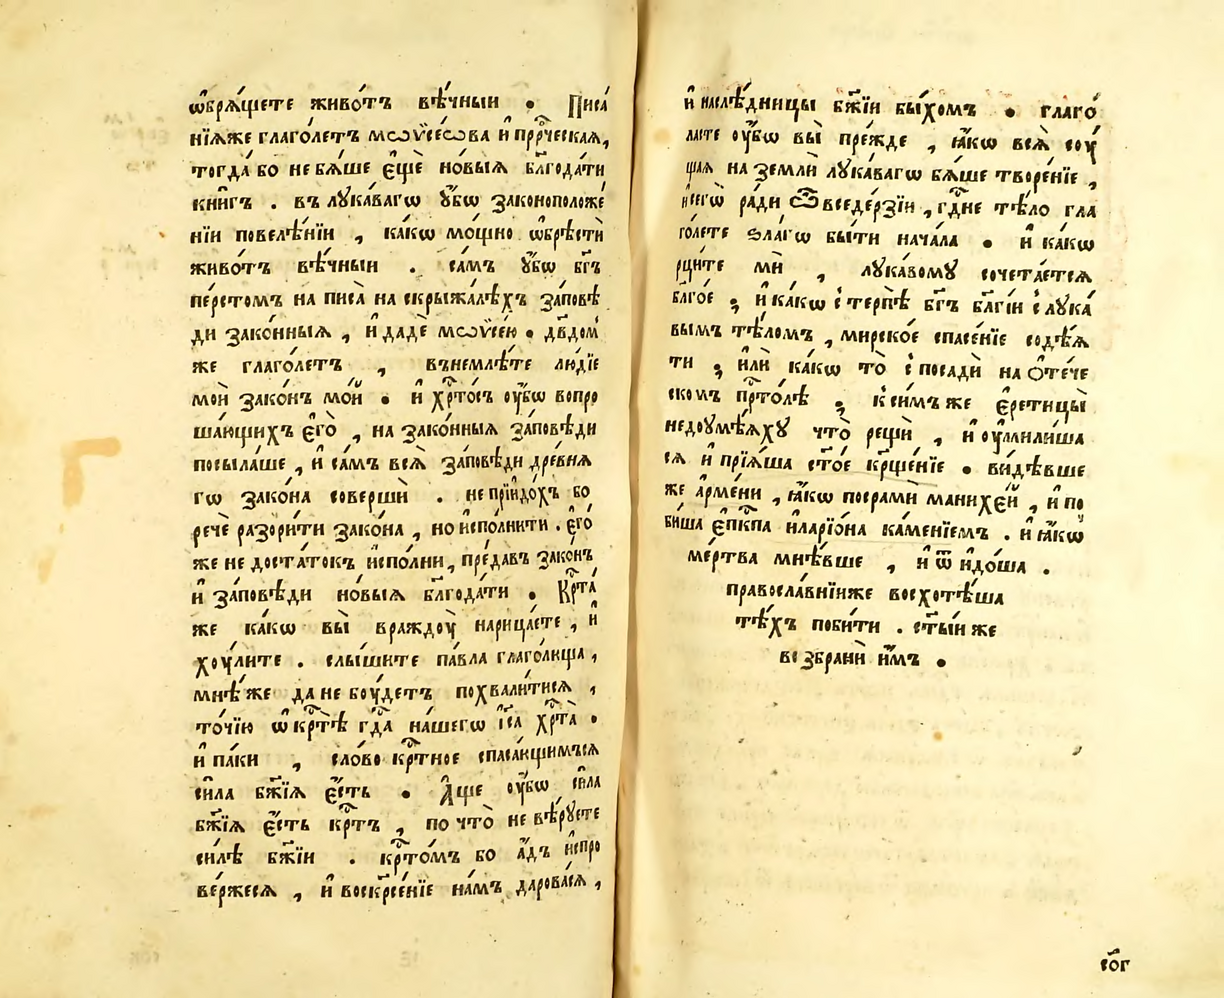 ѡ҆брѧ́щете живо́тъ вѣ́чныи • Писа́
нїѧже глаго́летъ мѡѷсе́ѡва и҆ прⷪ҇ро́ческаѧ,
тогда́ бо не бѧ́ше є҆щѐ но́выѧ бл҃года́ти
книгъ . въ лука́вагѡ ѹ҆́бѡ законоположе́
нїи повелѣ́нїи , ка́кѡ мо́щно ѡ҆брѣстѝ
живо́тъ вѣ́чныи . са́мъ ѹ҆́бѡ бг҃ъ
пе́рстомъ на писа̀ на скрыжа́лѣхъ за́повѣ
ди зако́нныѧ , и҆ дадѐ мѡѷсе́ю • дв҃дом̾
же глаго́летъ , внемлѣ́те лю́дїе
моѝ зако́нъ мо́й • и҆ хрⷭ҇то́съ ѹ҆́бѡ вопро
ша́ющихъ є҆го̀ , на зако́нныѧ за́повѣди
посыла́ше , и҆ са́мъ всѧ̀ за́повѣди дре́внѧ
гѡ зако́на соверши̑ . не прїидо́хъ бо
речѐ разори́ти зако́на , но и҆спо́лнити . є҆го́
же не доста́токъ и҆спо́лни , преда́въ зако́нъ
и҆ за́повѣди но́выѧ бл҃года́ти • Крⷭ҇та́
же ка́кѡ вы̀ враждоу̀ нарица́ете , и҆
хоу́лите . слы́шите па́вла глаго́люща ,
мнѣ́ же да не боу́детъ похвали́тисѧ ,
то́чїю ѡ҆ крⷭ҇тѣ̀ гдⷭ҇а на́шегѡ і҆и҃са хрⷭ҇та̀ •
и҆ па́ки , сло́во крⷭ҇тное спаса́ющимъсѧ
си́ла бж҃їѧ є҆́сть • А҆́ще оу҆́бѡ си́ла
бж҃їѧ є҆́сть крⷭ҇тъ , по что̀ не вѣ́руете
си́лѣ бж҃їи . крⷭ҇то́мъ бо а҆́дъ испро
ве́ржесѧ , и҆ воскрⷭ҇се́нїе на́мъ дарова́сѧ ,
и҆ наслѣ́дницы бж҃їи бы́хомъ • глаго́
лате оу҆́бѡ вы̀ пре́жде , ꙗ҆́кѡ всѧ̀ соу́
щаѧ на землѝ лука́вагѡ бѧ́ше творе́нїе ,
и сегѡ̀ ра́ди ѿ вседерзїи , гдⷭ҇не тѣ́ло гла
го́лете ѕла́гѡ бы́ти нача́ла • и҆ ка́кѡ
рцы́те мѝ , лука́вому сочета́етсѧ
бл҃го́е ; и҆ ка́кѡ с̾ терпѣ̀ бг҃ъ бл҃гі́и с̾ лука́
вымъ тѣ́ломъ , мирско́е спасе́нїе содѣ́ѧ
ти ; и҆лѝ ка́кѡ то̀ с̾ посадѝ на ѻ҆те́че
скомъ прⷭ҇то́лѣ ; к̾ си́мъ же є҆ре́тицы̀
недоумѣ́ѧху что̀ рещѝ , и҆ оу҆мили́ша
сѧ и҆ прїѧ́ша ст҃о́е крⷭ҇ще́нїе • ви́дѣвше
же а҆рме́ни , ꙗ҆́кѡ посрамѝ манихе́й , и҆ по
би́ша є҆пⷭ҇кпа и҆ларїо́на ка́менїемъ . и҆ ꙗ҆́кѡ
ме́ртва мнѣ́вше , и҆ ѿ идо́ша .
правосла́внїиже восхотѣ́ша
тѣ́хъ поби́ти . ст҃ы́и же
возбранѝ и҆̀мъ •
со҃г